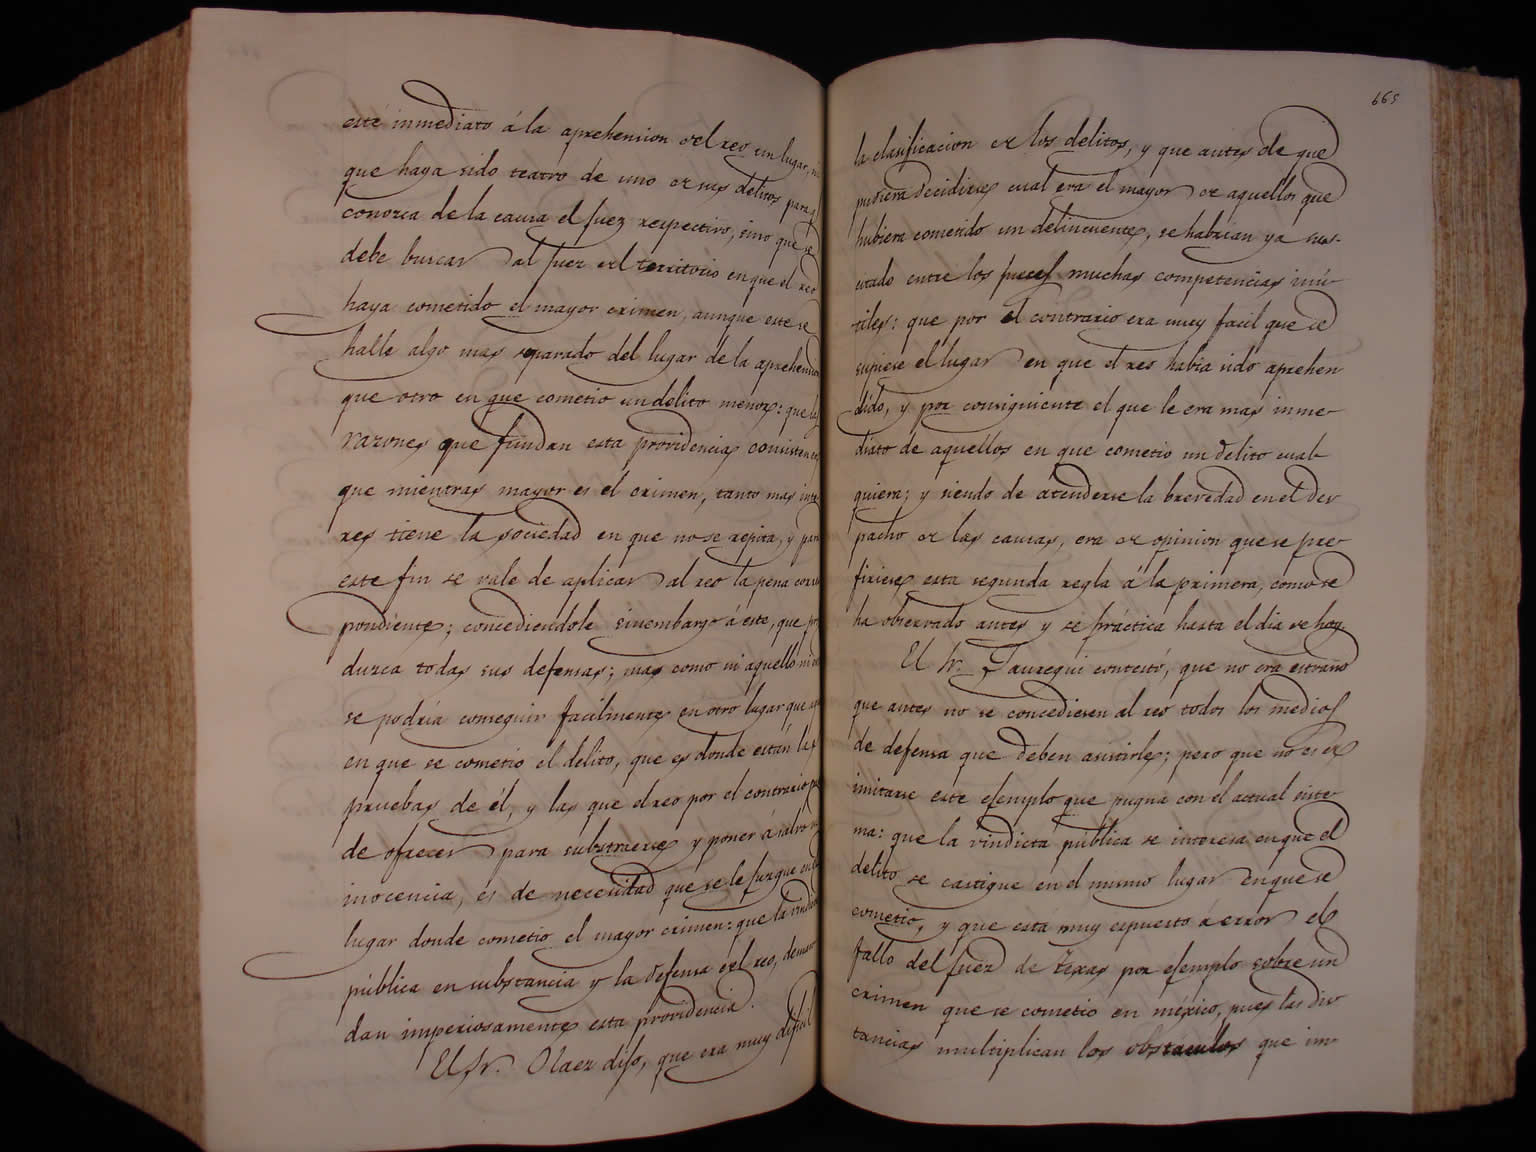 esté inmediato á la aprehension del reo un lugar, en
que haya sido teatro de uno de sus delitos para q.
conozca de la causa el juez respectivo, sino que se
debe buscar al juez del territorio en que el reo
haya cometido el mayor crimen, aunque este se
halle algo mas separado del lugar de la aprehension
que otro en que cometio un delito menor: que las
razones que fundan esta providencia consisten en
que mientras mayor es el crimen, tanto mas inte
res tiene la sociedad en que no se repita, y para
este fin se vale de aplicar al reo la pena corres
pondiente; concediendole sinembargo á este, que pro
duzca todas sus defensas; mas como ni aquello ni esto
se podria conseguir facilmente en otro lugar que aquel
en que se cometió el delito, que es donde están las
pruebas de él, y las que el reo por el contrario pue
de ofrecer para substraerse y poner á salvo su
inocencia, es de necesidad que se le juzgue en el
lugar donde cometio el mayor crimen: que la vindicta
pública en substancia y la defensa del reo, deman
dan imperiosamente esta providencia.
El Sr. Olaez dijo, que era muy dificil
665
la clasificacion de los delitos, y que antes de que
pudiera decidirse cual era el mayor de aquellos que
hubiera cometido un delincuente, se habrian ya sus-
citado entre los jueces muchas competencias inú-
tiles: que por el contrario era muy facil que se
supiese el lugar en que el reo habia sido aprehen
dido, y por consiguiente el que le era mas inme-
diato de aquellos en que cometio un delito cual-
quiera; y siendo de atenderse la brevedad en el des
pacho de las causas, era de opinion que se pre-
firiese esta segunda regla á la primera, como se
ha observado antes y se práctica hasta el dia de hoy.
El Sr. Jauregui contestó, que no era estraño
que antes no se concediesen al reo todos los medios
de defensa que deben asistirle; pero que no es de
imitarse este ejemplo que pugna con el actual siste-
ma: que la vindicta pública se interesa en que el
delito se castigue en el mismo lugar en que se
cometio, y que está muy espuesto á error el
fallo del juez de Texas por ejemplo sobre un
crimen que se cometio en méxico, pues las dis-
tancias multiplican los obstaculos que im-